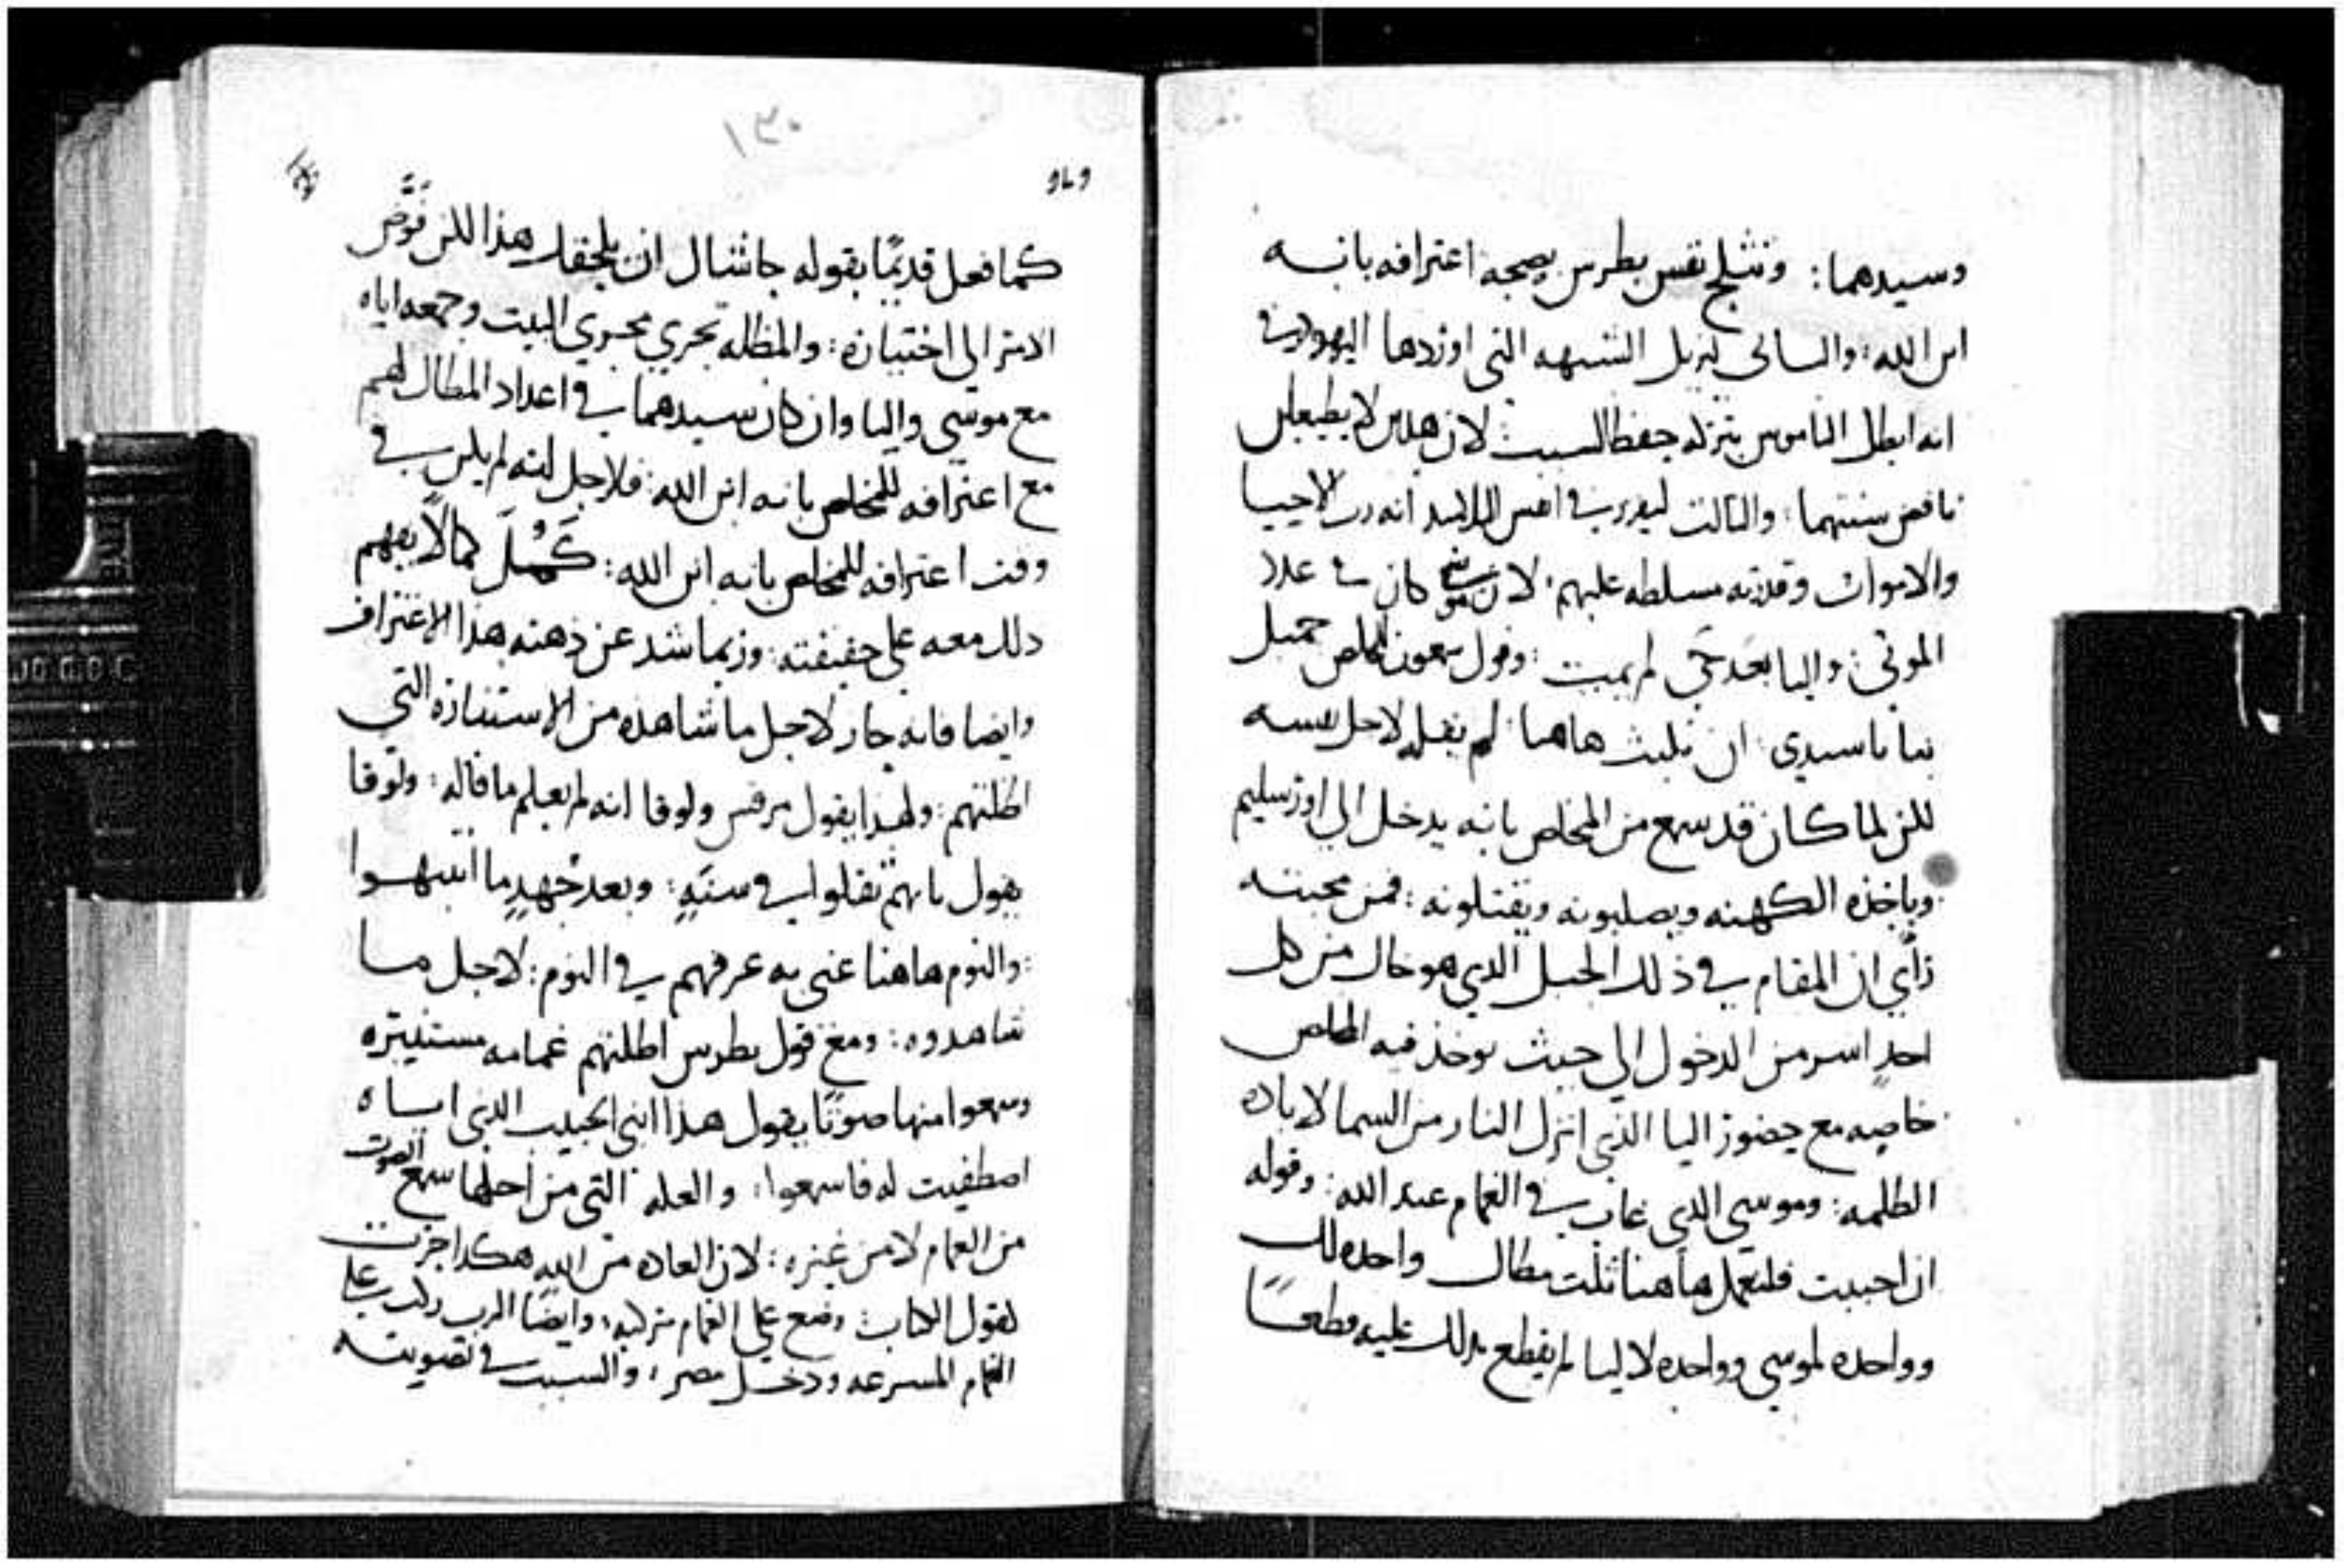 وسيدهما: وتثلج نفس بطرس بصحه اعترافه بانه
ابن الله: والثاني ليزيل الشبهه التي اوردها اليهود في
انه ابطل الناموس بتركه حفظ السبت لان هذين لا يطيعان
ناقض سنتهما: والثالث ليقرر في انفس التلاميذ انه رب الاحيا
والاموات وقدرته مسلطه عليهم: لان موسى كان في عدد
الموتى: واليا بعد حي لم يميت: وقول سمعون للمخلص جميل
بنا يا سيدي ان نلبث هاهنا: لم يقله لاجل نفسه
لكن لما كان قد سمع من المخلص بانه يدخل الى اورشليم
وياخذه الكهنه ويصلبونه ويقتلونه: فمن محبته
رأي ان المقام في ذلك الجبل الذي هو خال من كل
احدٍ اسر من الدخول الى حيث يوخذ فيه المخلص
خاصه مع حضور اليا الذي انزل النار من السما لاباده
الظلمه: وموسى الذي غاب في الغمام عند الله: وقوله
ان احببت فلنعمل هاهنا ثلث مظال واحده لك
وواحده لموسى وواحده لاليا لم يقطع بذلك عليه قطعًا
١٣٠
كما فعل قديمًا بقوله حاشاك ان يلحقك هذا لكن فَوَّض
الامر الى اختياره: والمظله تجري مجري البيت وجمعه اياه
مع موسى واليا وان كان سيدهما في اعداد المظال لهم
مع اعترافه للمخلص بانه ابن الله: فلاجل انه لم يكن في
وقت اعترافه للمخلص بانه ابن الله: كَمُلَ كمالًا يفهم
ذلك معه على حقيقته: وربما شد عن ذهنه هذا الاعتراف
وايضا فانه حار لاجل ما شاهده من الاستناره التي
اظلتهم: ولهذا يقول مرقس ولوقا انه لم يعلم ما قاله: ولوقا
يقول بانهم ثقلوا في سنَهٍ: وبعد جُهدٍ ما انتبهوا
: والنوم هاهنا عنى به غرقهم في النوم: لاجل ما
شاهدوه: ومع قول بطرس اظلتهم غمامه مستنيره
وسمعوا منها صوتًا يقول هذا ابني الحبيب الذي اياه
اصطفيت له فاسمعوا: والعله التي من اجلها سمع الصوت
من الغمام لا من غيره: لان العاده من الله هكذا جرت
كقول الكتاب وضع على الغمام مركبه: وايضًا الرب راكب على
الغمام المسرعه ودخل مصر: والسبب في تصويته